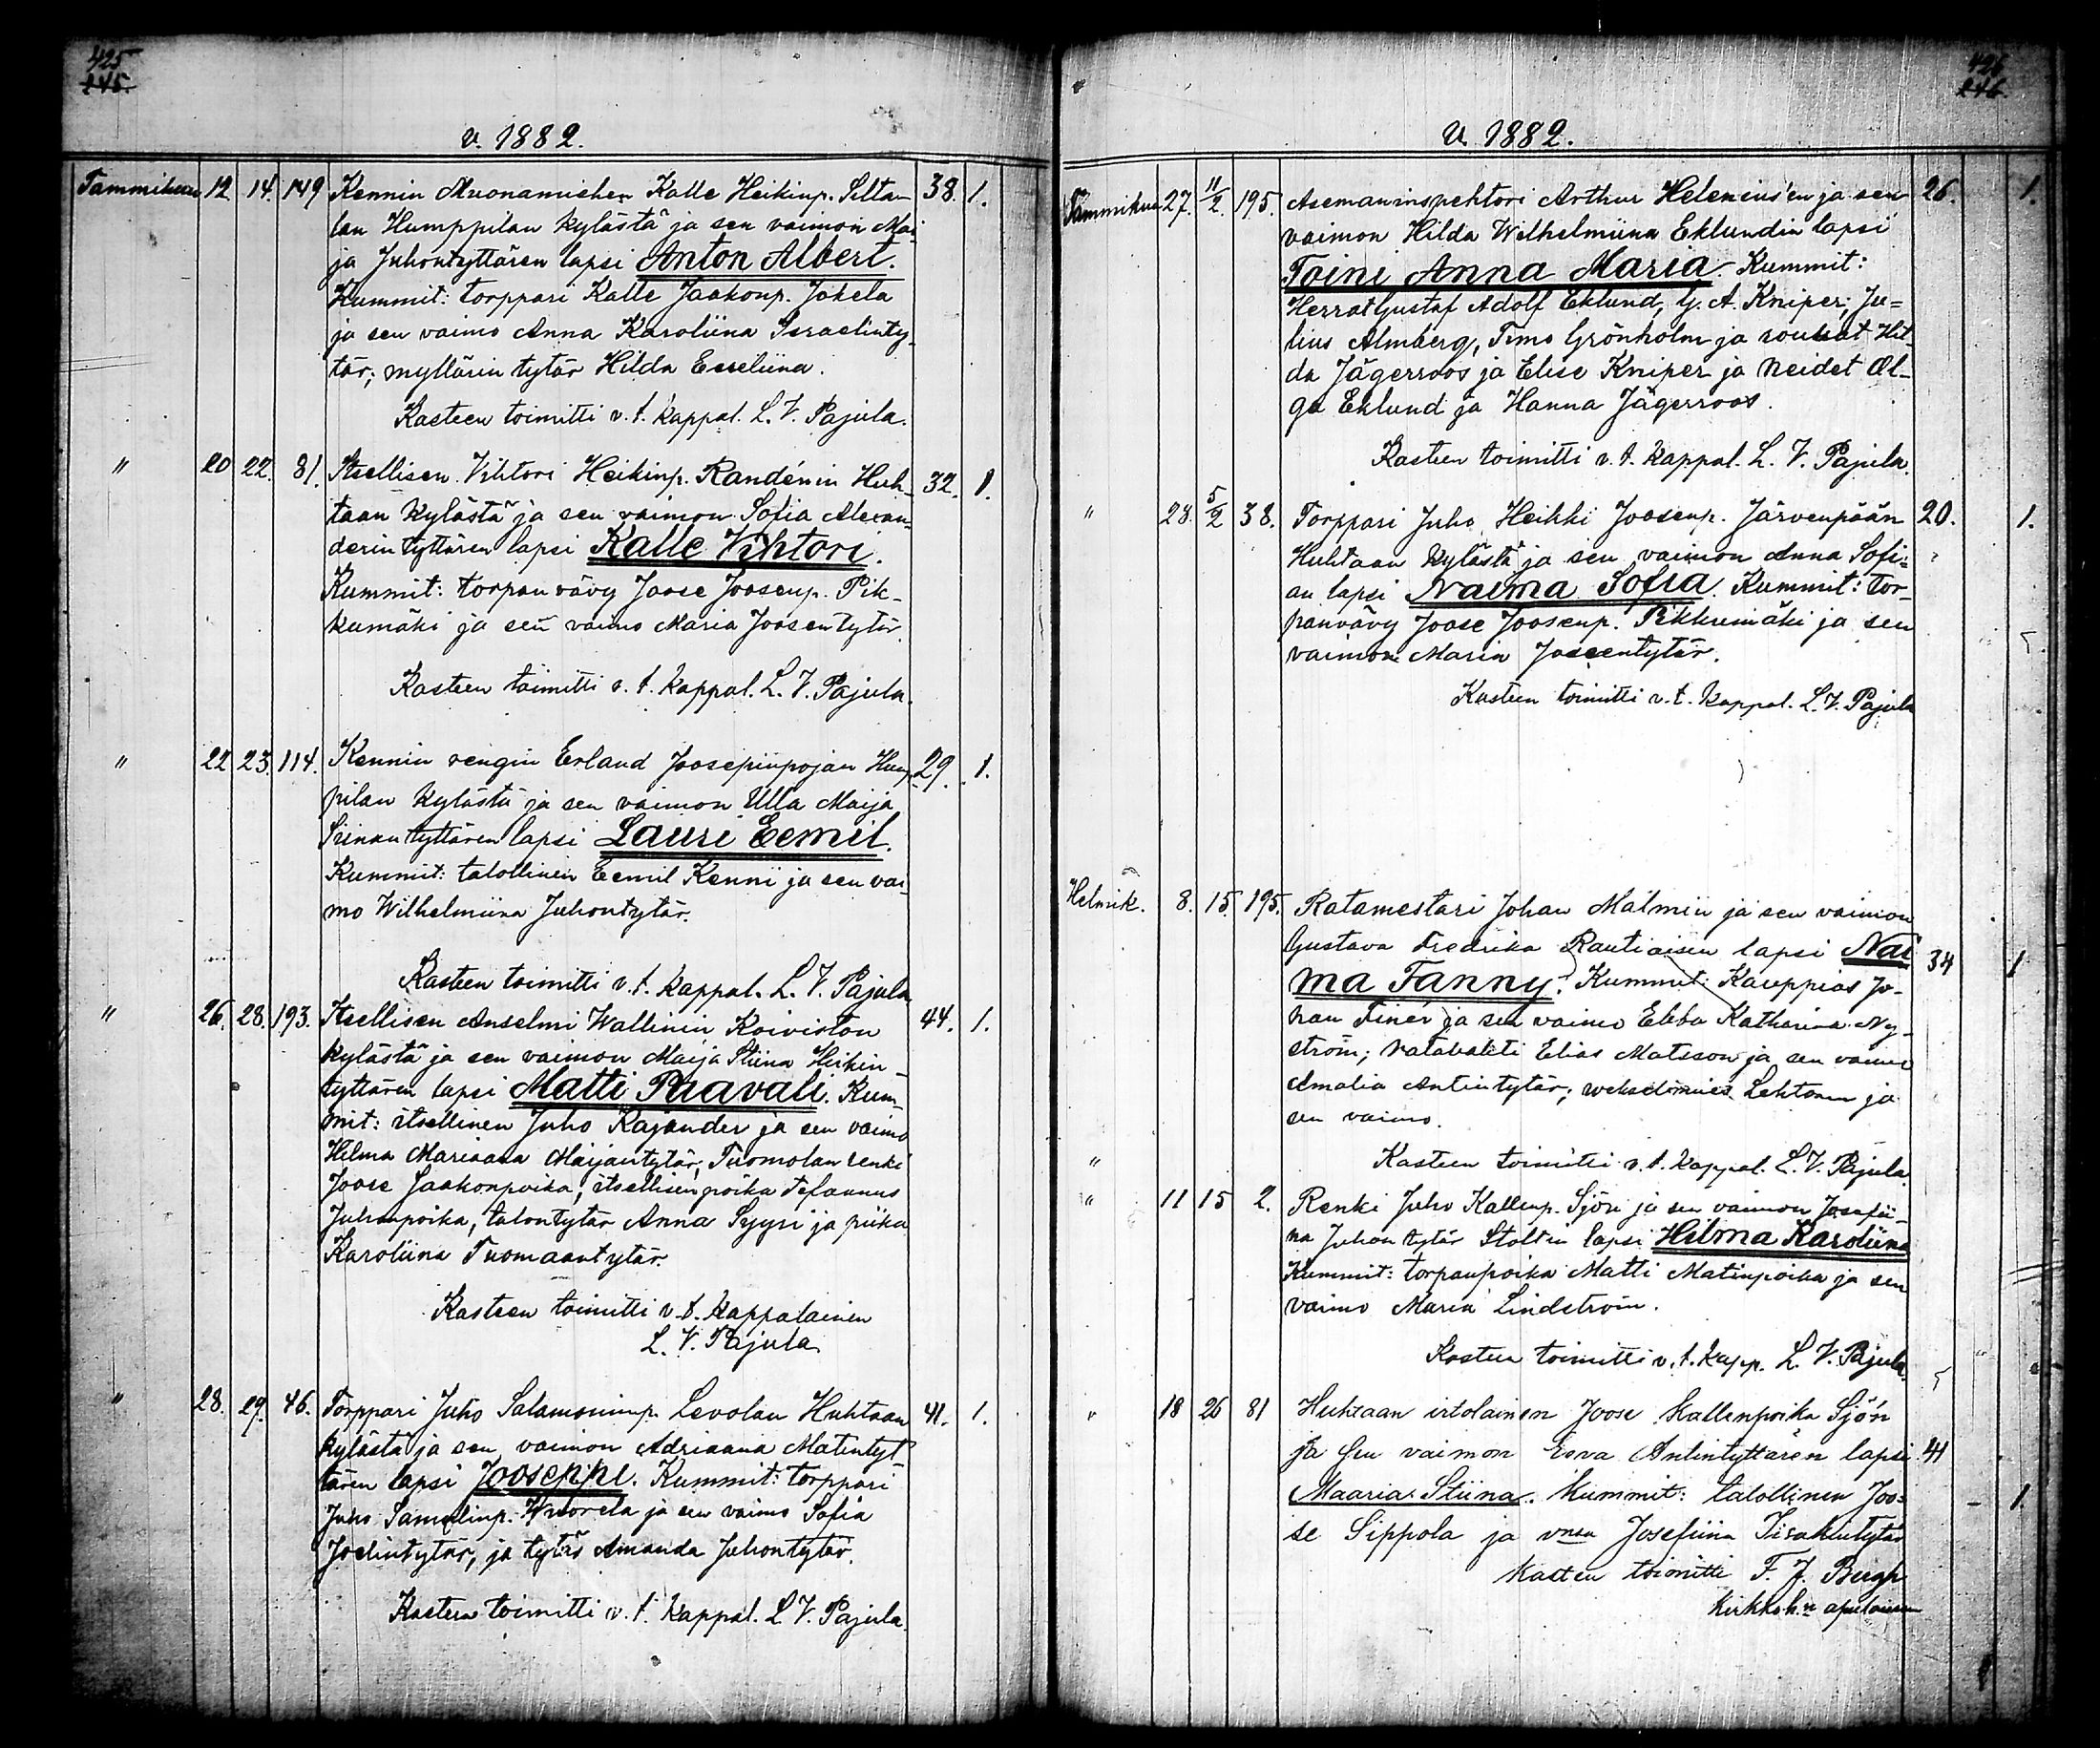 425
245.
v. 1882.
Tammikuu 12 14. 149 Kennin Muonamiehen Kalle Heikinp. Silta- 38. 1.
lan Humppilan kylästä ja sen vaimon Mai-
ja Juhontyttären lapsi Anton Albert.
Kummit: torppari Kalle Jaakonp. Jokela
ja sen vaimo Anna Karoliina Israelinty-
tär; myllärin tytär Hilda Esseliina.
Kasteen toimitti v. t. kappal. L. V. Pajula.
" 20 22. 81. Itsellisen Vihtori Heikinp. Randénin Huh- 32. 1.
taan kylästä ja sen vaimon Sofia Alexan-
derin tyttären lapsi Kalle Vihtori.
Kummit: torpan vävy Joose Joosenp. Pik-
kumäki ja sen vaimo Maria Joosentytär.
Kasteen toimitti v. t. kappal. L. V. Pajula.
" 22 23. 114. Kennin rengin Erland Joosepinpojan Hump- 29. 1.
pilan kylästä ja sen vaimon Ulla Maija
Siinantyttären lapsi Lauri Eemil.
Kummit: talollinen Eemil Kenni ja sen vai-
mo Wilhelmiina Juhontytär.
Kasteen toimitti v. t. kappal. L. V. Pajula
" 26. 28. 193. Itsellisen Anselmi Wallinin Koiviston 44. 1.
kylästä ja sen vaimon Maija Stiina Heikin-
tyttären lapsi Matti Paavali. Kum-
mit: itsellinen Juho Rajander ja sen vaimo
Hilma Mariaana Maijantytär, Tuomolan renki
Joose Jaakonpoika, itsellisen poika Tefaanus
Juhonpoika, talontytär Anna Syyri ja piika
Karoliina Tuomaantytär.
Kasteen toimitti v. t. kappalainen
L. V. Pajula.
" 28. 29. 46. Torppari Juho Salamoninp. Levolan Huhtaan 41. 1.
kylästä ja sen vaimon Adriaana Matintyt-
tären lapsi Jooseppi. Kummit: torppari
Juho Samulinp. Kuorela ja sen vaimo Sofia
Joelintytär, ja tytär Amanda Juhontytär.
Kasteen toimitti v. t. kappal. L. V. Pajula.
246.
v. 1882.
Tammikuu 27. 11/2. 195. Asemaninspehtori Arthur Helenius'en ja sen 26. 1.
vaimon Hilda Wilhelmiina Eklundin lapsi
Toini Anna Maria. Kummit:
Herrat Gustaf Adolf Eklund, G. A. Kniper, Ju-
lius Almberg, Timo Grönholm ja rouvat Hil-
da Jägerroos ja Elise Kniper ja Neidet Ol-
ga Eklund ja Hanna Jägerroos.
Kasteen toimitti v. t. kappal. L. V. Pajula.
" 28. 5/2 38. Torppari Juho Heikki Joosenp. Järvenpään 20. 1.
Huhtaan kylästä ja sen vaimon Anna Sofi-
an lapsi Naima Sofia. Kummit: tor-
panvävy Joose Joosenp. Pikkumäki ja sen
vaimon Maria Joosentytär.
Kasteen toimitti v. t. kappal. L. V. Pajula
Helmik. 8. 15. 195. Ratamestari Johan Malmin ja sen vaimon
Gustava Fredrika Rautiaisen lapsi Nai 34 1
ma Fanny. Kummit: Kauppias Jo-
han Finér ja sen vaimo Ebba Katharina Ny-
ström; ratavahti Elias Matsson ja sen vaimo
Amalia Antintytär; wekselimies Lehtonen ja
sen vaimo.
" Kasteen toimitti v. t. kappal. L. V. Pajula.
" 11 15 2. Renki Juho Kallenp. Sjön ja sen vaimon Josefii-
na Juhontytär Stoltin lapsi Hilma Karoliina
Kummit: torpanpoika Matti Matinpoika ja sen
vaimo Maria Lindström.
Kasteen toimitti v. t. kapp. L. V. Pajula.
" 18 26 81 Huhtaan irtolainen Joose Kallenpoika Sjön
ja sen vaimon Eeva Antintyttären lapsi 41
Maaria Stiina. Kummit: talollinen Joo- 1
se Sippola ja vmsa Josefiina Iisakintytär
Kasteen toimitti F. J. Bergh
kirkkoh:n apulainen